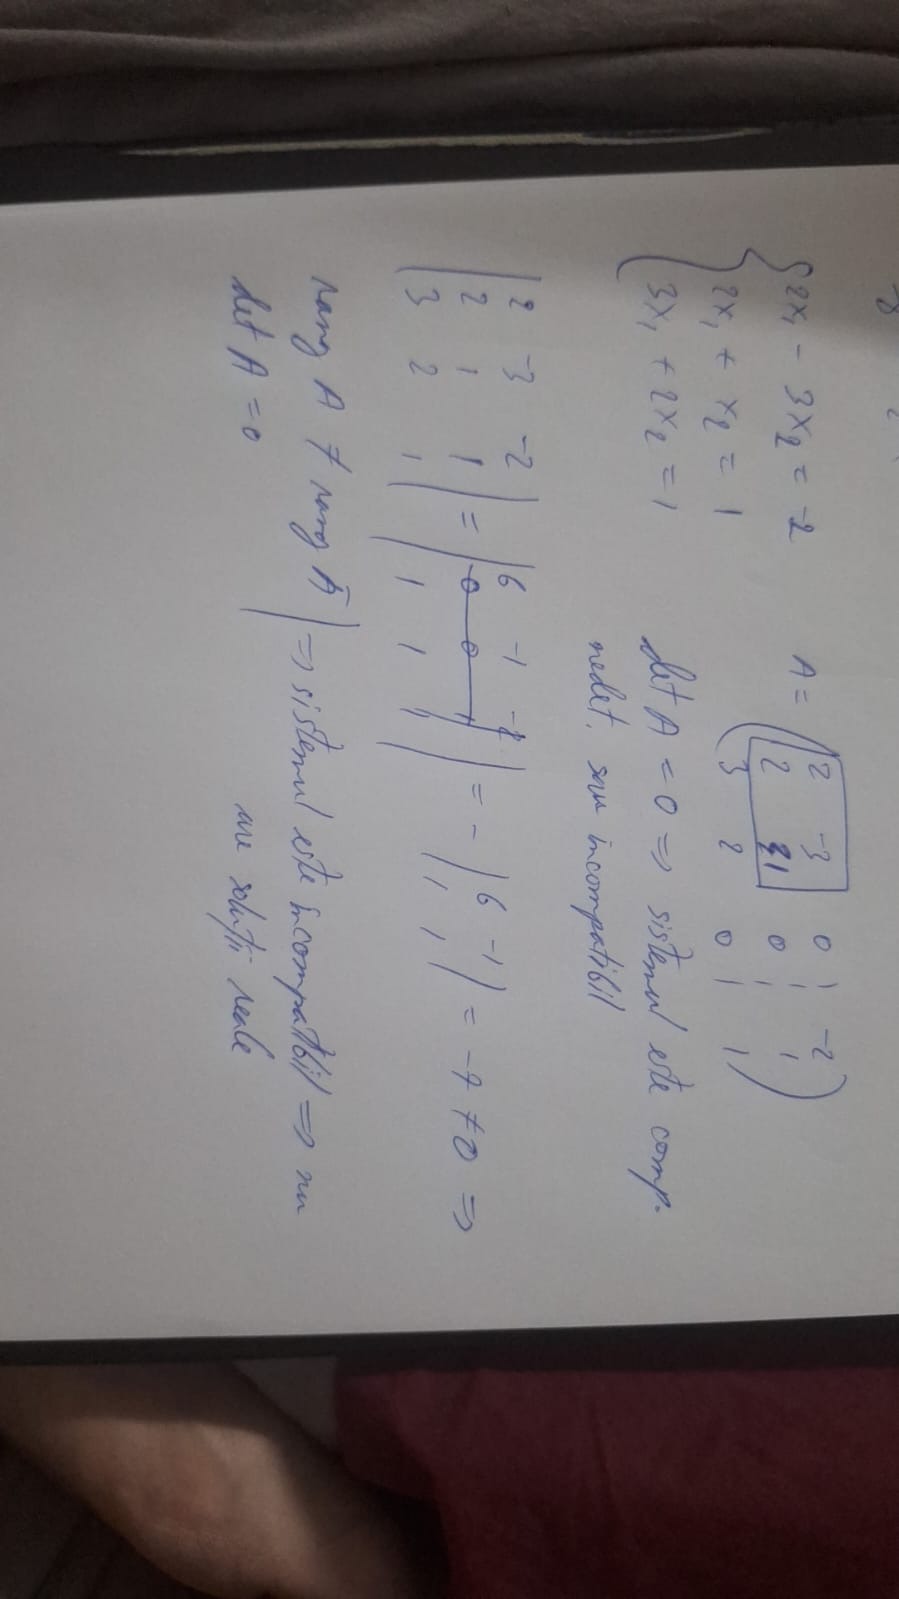 2x₁ - 3x₂ = -2
2x₁ + x₂ = 1
3x₁ + 2x₂ = 1
A = ( 2 -3 0 | -2
2 1 0 | 1
3 2 0 | 1 )
det A = 0 => sistemul este comp.
nedet. sau incompatibil
| 2 -3 -2 | = | 6 -1 -2 | = - | 6 -1 | = -7 ≠ 0 =>
| 2 1 1 | | 0 0 1 | | 1 1 |
| 3 2 1 | | 1 1 1 |
rang A ≠ rang Ā | => sistemul este incompatibil => nu
det A = 0 are soluții reale